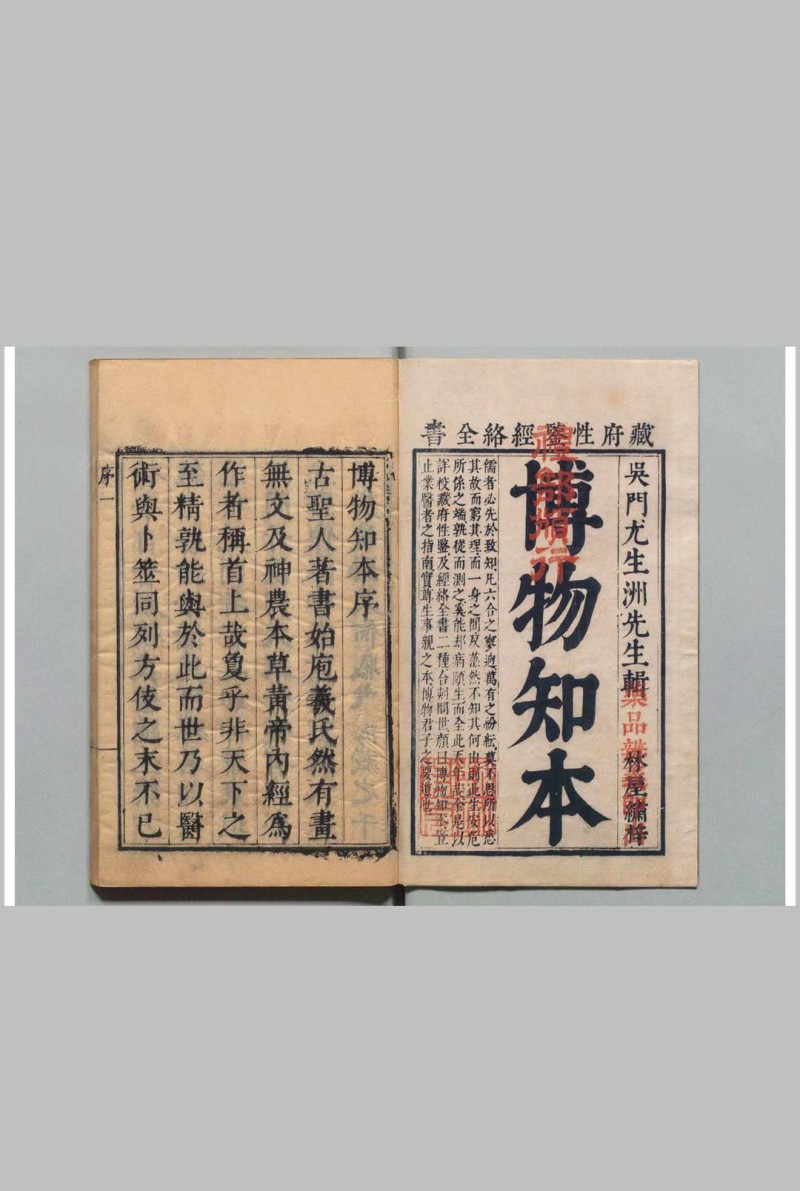 藏府性鑒經絡全書
吳門尤生洲先生輯 林屋繡梓
博物知本
儒者必先於致知凡六合之寥迥萬有之紛紜莫不思所以悉
其故而窮其理而一身之間反茫然不知其何由則此生安危
所係之端孰從而測之奚能却病頤生而全此天年哉余是以
詳校藏府性鑒及經絡全書二種合刻問世顏曰博物知本豈
止業醫者之指南實尊生事親之本博物君子之要道也
禮部頒行
博物知本序
古聖人著書始庖羲氏然有畫
無文及神農本草黃帝內經為
作者稱首上哉敻乎非天下之
至精孰能與於此而世乃以醫
術與卜筮同列方伎之末不已
序 一